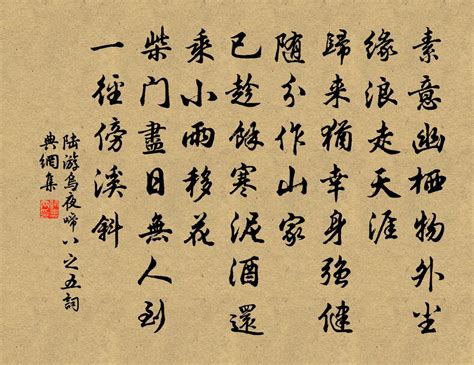 素意幽栖物外尘
缘浪走天涯
歸来猶幸身強健
随分作山家
已趁餘寒泥酒還
乘小雨移花
柴门盡日無人到
一徑傍溪斜
陸游烏夜啼八之五詞
典網集